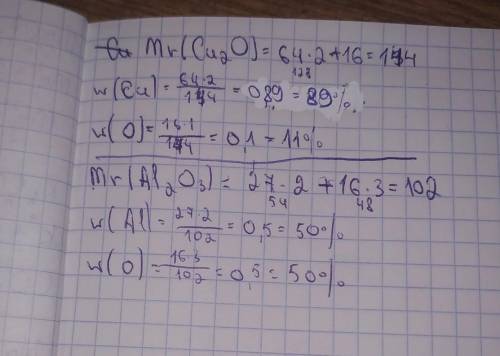 Mr(Cu₂O) = 64·2+16 = 144
128
w(Cu) = 64·2/144 = 0,89 = 89%
w(O) = 16·1/144 = 0,1 = 11%
Mr(Al₂O₃) = 27·2+16·3 = 102
54 48
w(Al) = 27·2/102 = 0,5 = 50%
w(O) = 16·3/102 = 0,5 = 50%